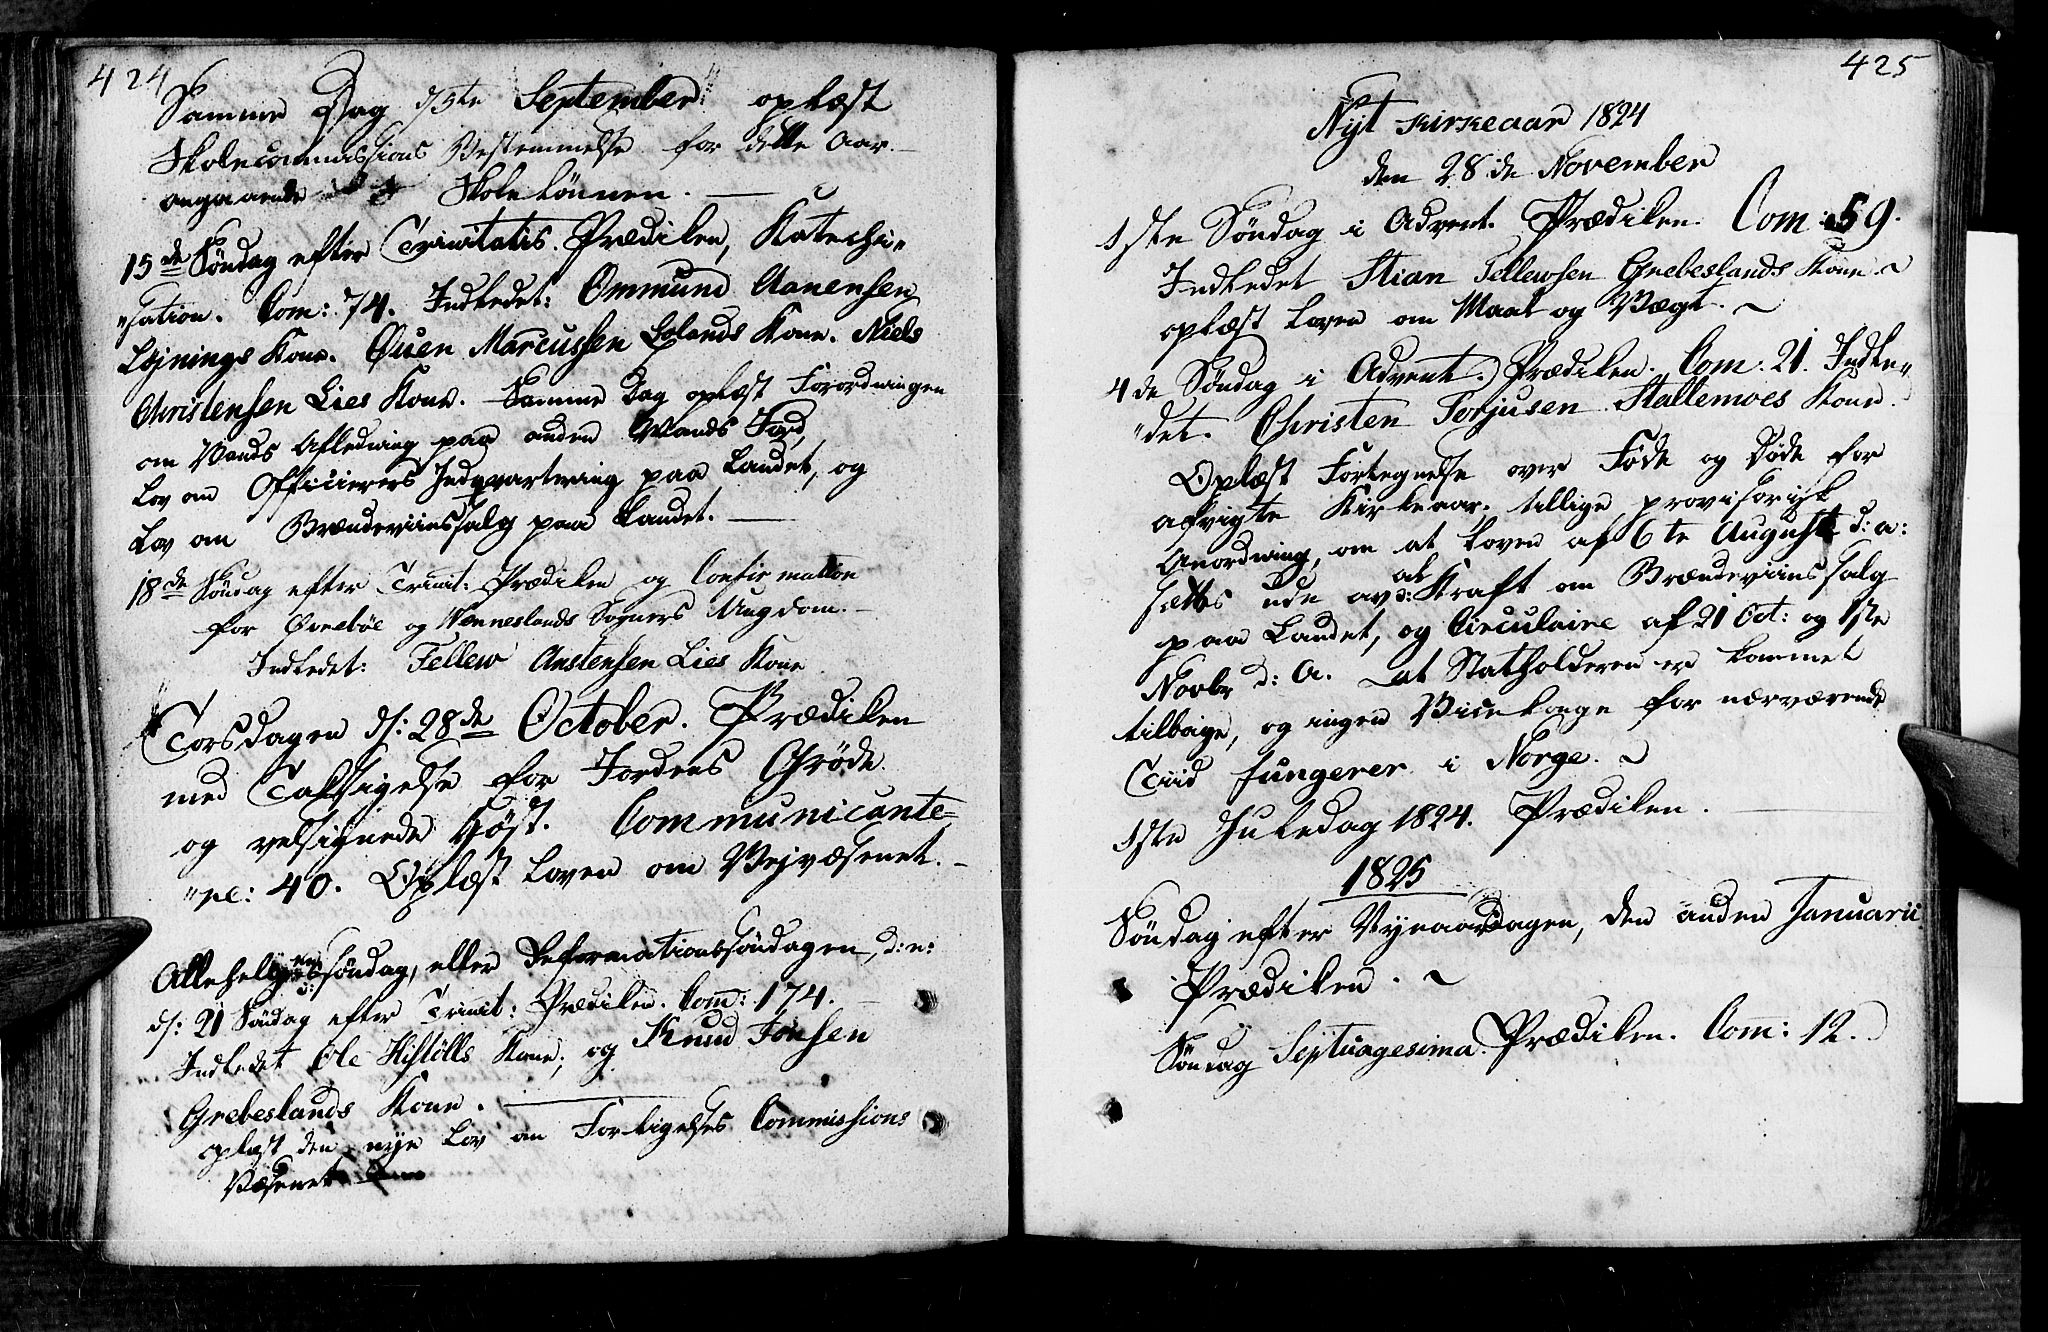 424
Samme Dag d 5te September oplæst
Skolecommissions Bestemmelse for dette Aar
angaaende Skolelönnen. —
15de Söndag efter Trinitatis. Prædiken, Katechi„
„sation. Com: 74. Indledet: Ommund Aanensen
Löjnings Kone. Ouen Marcussen Lolands Kone. Niels
Christensen Lies Kone. Samme Dag oplæst Forordningen
om Vands Afledning paa anden Mands Jord,
Lov om Officierers Indqvartering paa Landet, og
Lov om Brændeviinssalg paa Landet. —
18de Söndag efter Trinit: Prædiken og Confirmation
for Øvreböe og Wenneslands Sogners Ungdom. —
Indledet: Tellew Anstensen Lies Kone
Torsdagen d: 28de October. Prædiken
med Taksigelse for Jordens Gröde
og velsignede Höst. Communicante=
„re: 40. Oplæst Loven om Vejvæsenet. —
Allehelgens söndag, eller Reformationssöndagen, d: e:
d: 21 Söndag efter Trinit: Prædiken. Com: 174. —
Indledet Ole Histölls Kone, og Knud Jonsen
Grebeslands Kone. —
oplæst den nye Lov om Forligelses Commissions
Væsenet
425
Nyt Kirkeaar 1824
den 28de November
1ste Söndag i Advent. Prædiken. Com: 59.
Indledet Stian Tellewsen Grebeslands Kone ~
oplæst Loven om Maal og Vægt. ~
4de Söndag i Advent. Prædiken. Com. 21. Indle„
„det. Christen Torjusen Stallemoes Kone.
Oplæst Fortegnelse over Föde og Döde for
afvigte Kirkeaar. tillige provisorisk
Anordning, om at Loven af 6te August d: a:
sættes ude af Kraft om Brændeviinssalg
paa Landet, og Circulaire af 21 Oct: og 1ste
Novbr d: A. at Statholderen er kommet
tilbage, og ingen Vicekonge for nærværende
Tiid fungerer i Norge. ~
1ste Juledag 1824. Prædiken.
1825
Söndag efter Nynaarsdagen, den anden Januarii
Prædiken. ~
Söndag Septuagesima. Prædiken. Com: 12.